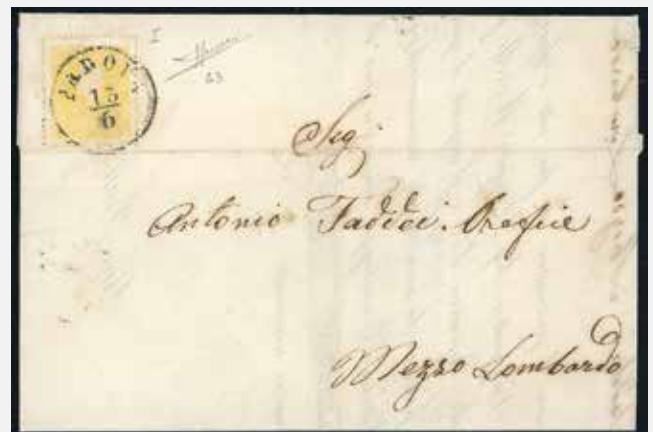 PADOVA
13
6
I
23
Sig.
Antonio Taddei. Orefice
Mezzo Lombardo